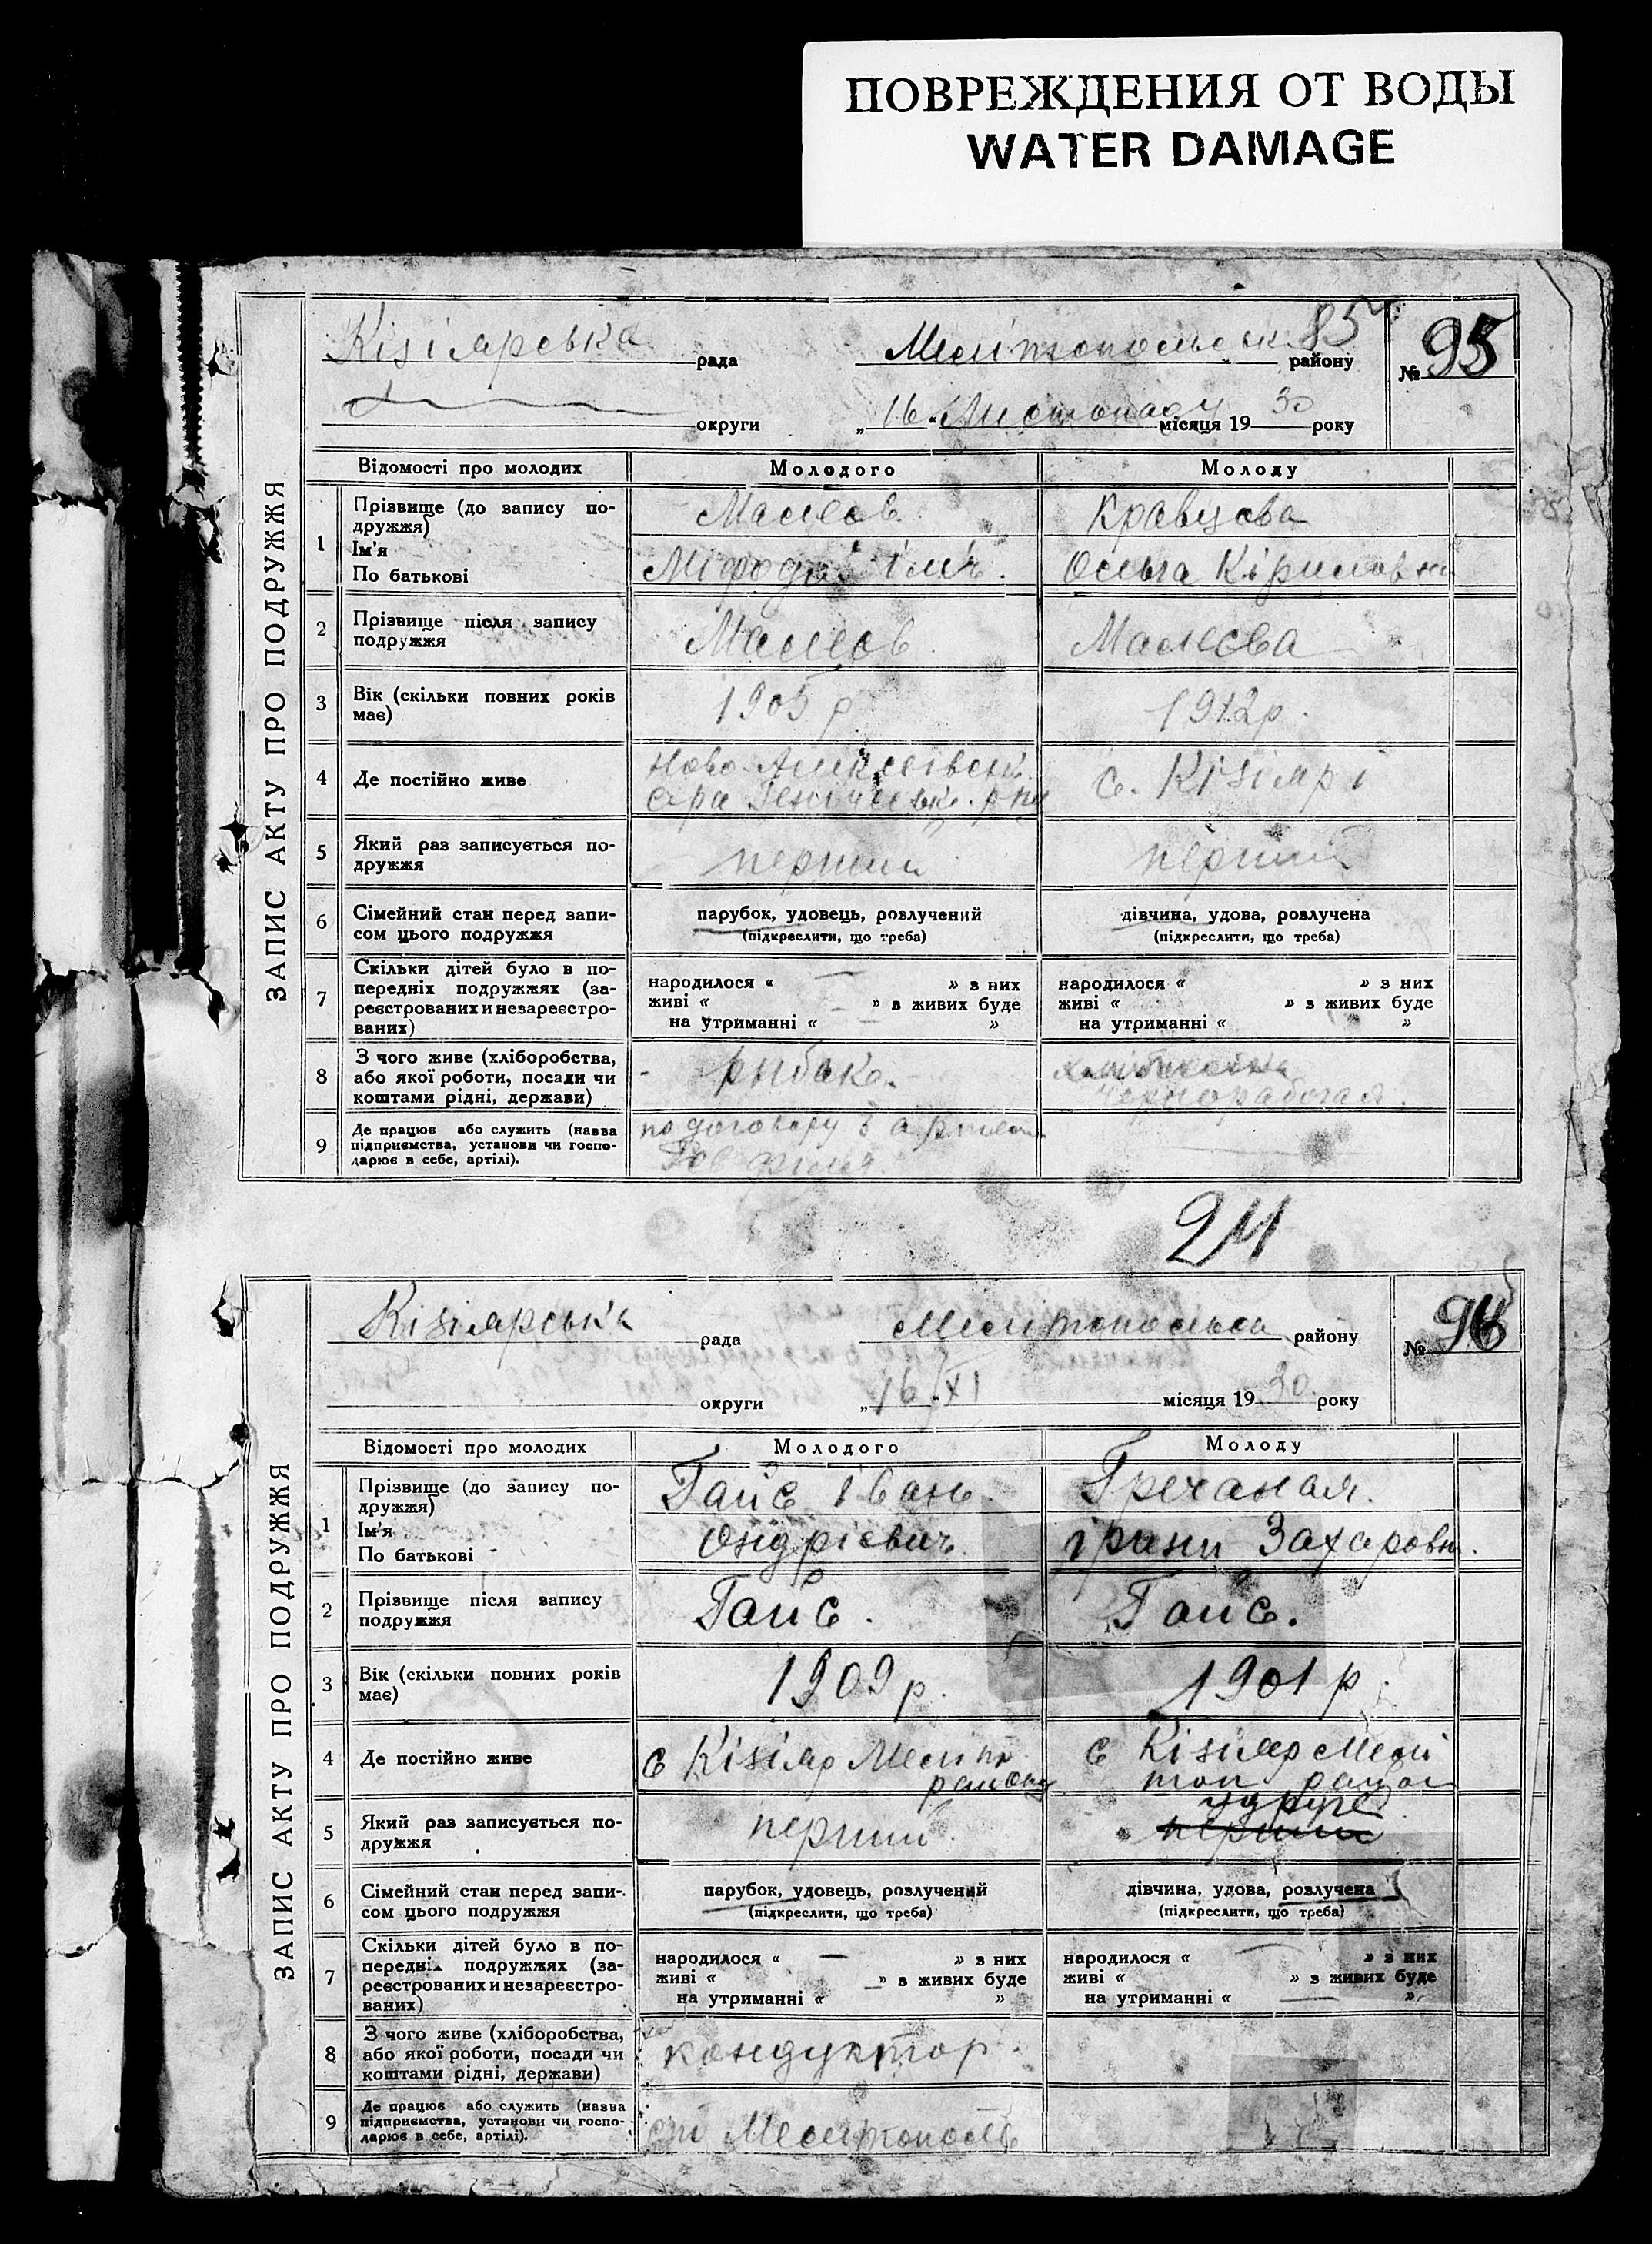 ПОВРЕЖДЕНИЯ ОТ ВОДЫ
WATER DAMAGE
ЗАПИС АКТУ ПРО ПОДРУЖЖЯ
85
Кізіярська рада Мелітопольськ району № 95
округи „16“ Листопаду місяця 1930 року
Відомості про молодих Молодого Молоду
1 Прізвище (до запису по-
дружжя) Малєєв Кравцова
Ім'я
По батькові Міфодій Ілліч. Ольга Кіриловна
2 Прізвище після запису
подружжя Малєєв Малєєва
3 Вік (скільки повних років
має) 1905 р 1912 р.
4 Де постійно живе Ново-Алексеівськ. с. Кізіярі
5 Який раз записується по-
дружжя перший перший
6 Сімейний стан перед запи-
сом цього подружжя парубок, удовець, розлучений дівчина, удова, розлучена
(підкреслити, що треба) (підкреслити, що треба)
7 Скільки дітей було в по-
передніх подружжях (за-
реєстрованих и незареєстро-
ваних)
народилося « » з них народилося « » з них
живі « » з живих буде живі « » з живих буде
на утриманні « » на утриманні « »
8 З чого живе (хліборобства,
або якої роботи, посади чи
коштами рідні, держави) рыбак. чернорабочая.
9 Де працює або служить (назва
підприємства, установи чи госпо-
дарює в себе, артілі). по договору з
24
ЗАПИС АКТУ ПРО ПОДРУЖЖЯ
Кізіярська рада Мелітопольса району № 96
округи „16“ XI місяця 1930. року
Відомості про молодих Молодого Молоду
1 Прізвище (до запису по-
дружжя) Гайс Іван Гречаная.
Ім'я
По батькові Ондрієвич Ірини Захаровн.
2 Прізвище після запису
подружжя Гайс. Гайс.
3 Вік (скільки повних років
має) 1909 р. 1901 р.
4 Де постійно живе с Кізіяр Меліто с Кізіяр Мелі
району топ район
удруге
5 Який раз записується по-
дружжя перший перший
6 Сімейний стан перед запи-
сом цього подружжя парубок, удовець, розлучений дівчина, удова, розлучена
(підкреслити, що треба) (підкреслити, що треба)
7 Скільки дітей було в по-
передніх подружжях (за-
реєстрованих и незареєстро-
ваних)
народилося « — » з них народилося « — » з них
живі « » з живих буде живі « » з живих буде
на утриманні « » на утриманні « »
8 З чого живе (хліборобства,
або якої роботи, посади чи
коштами рідні, держави) кондуктор.
9 Де працює або служить (назва
підприємства, установи чи госпо-
дарює в себе, артілі). ст Мелітополь